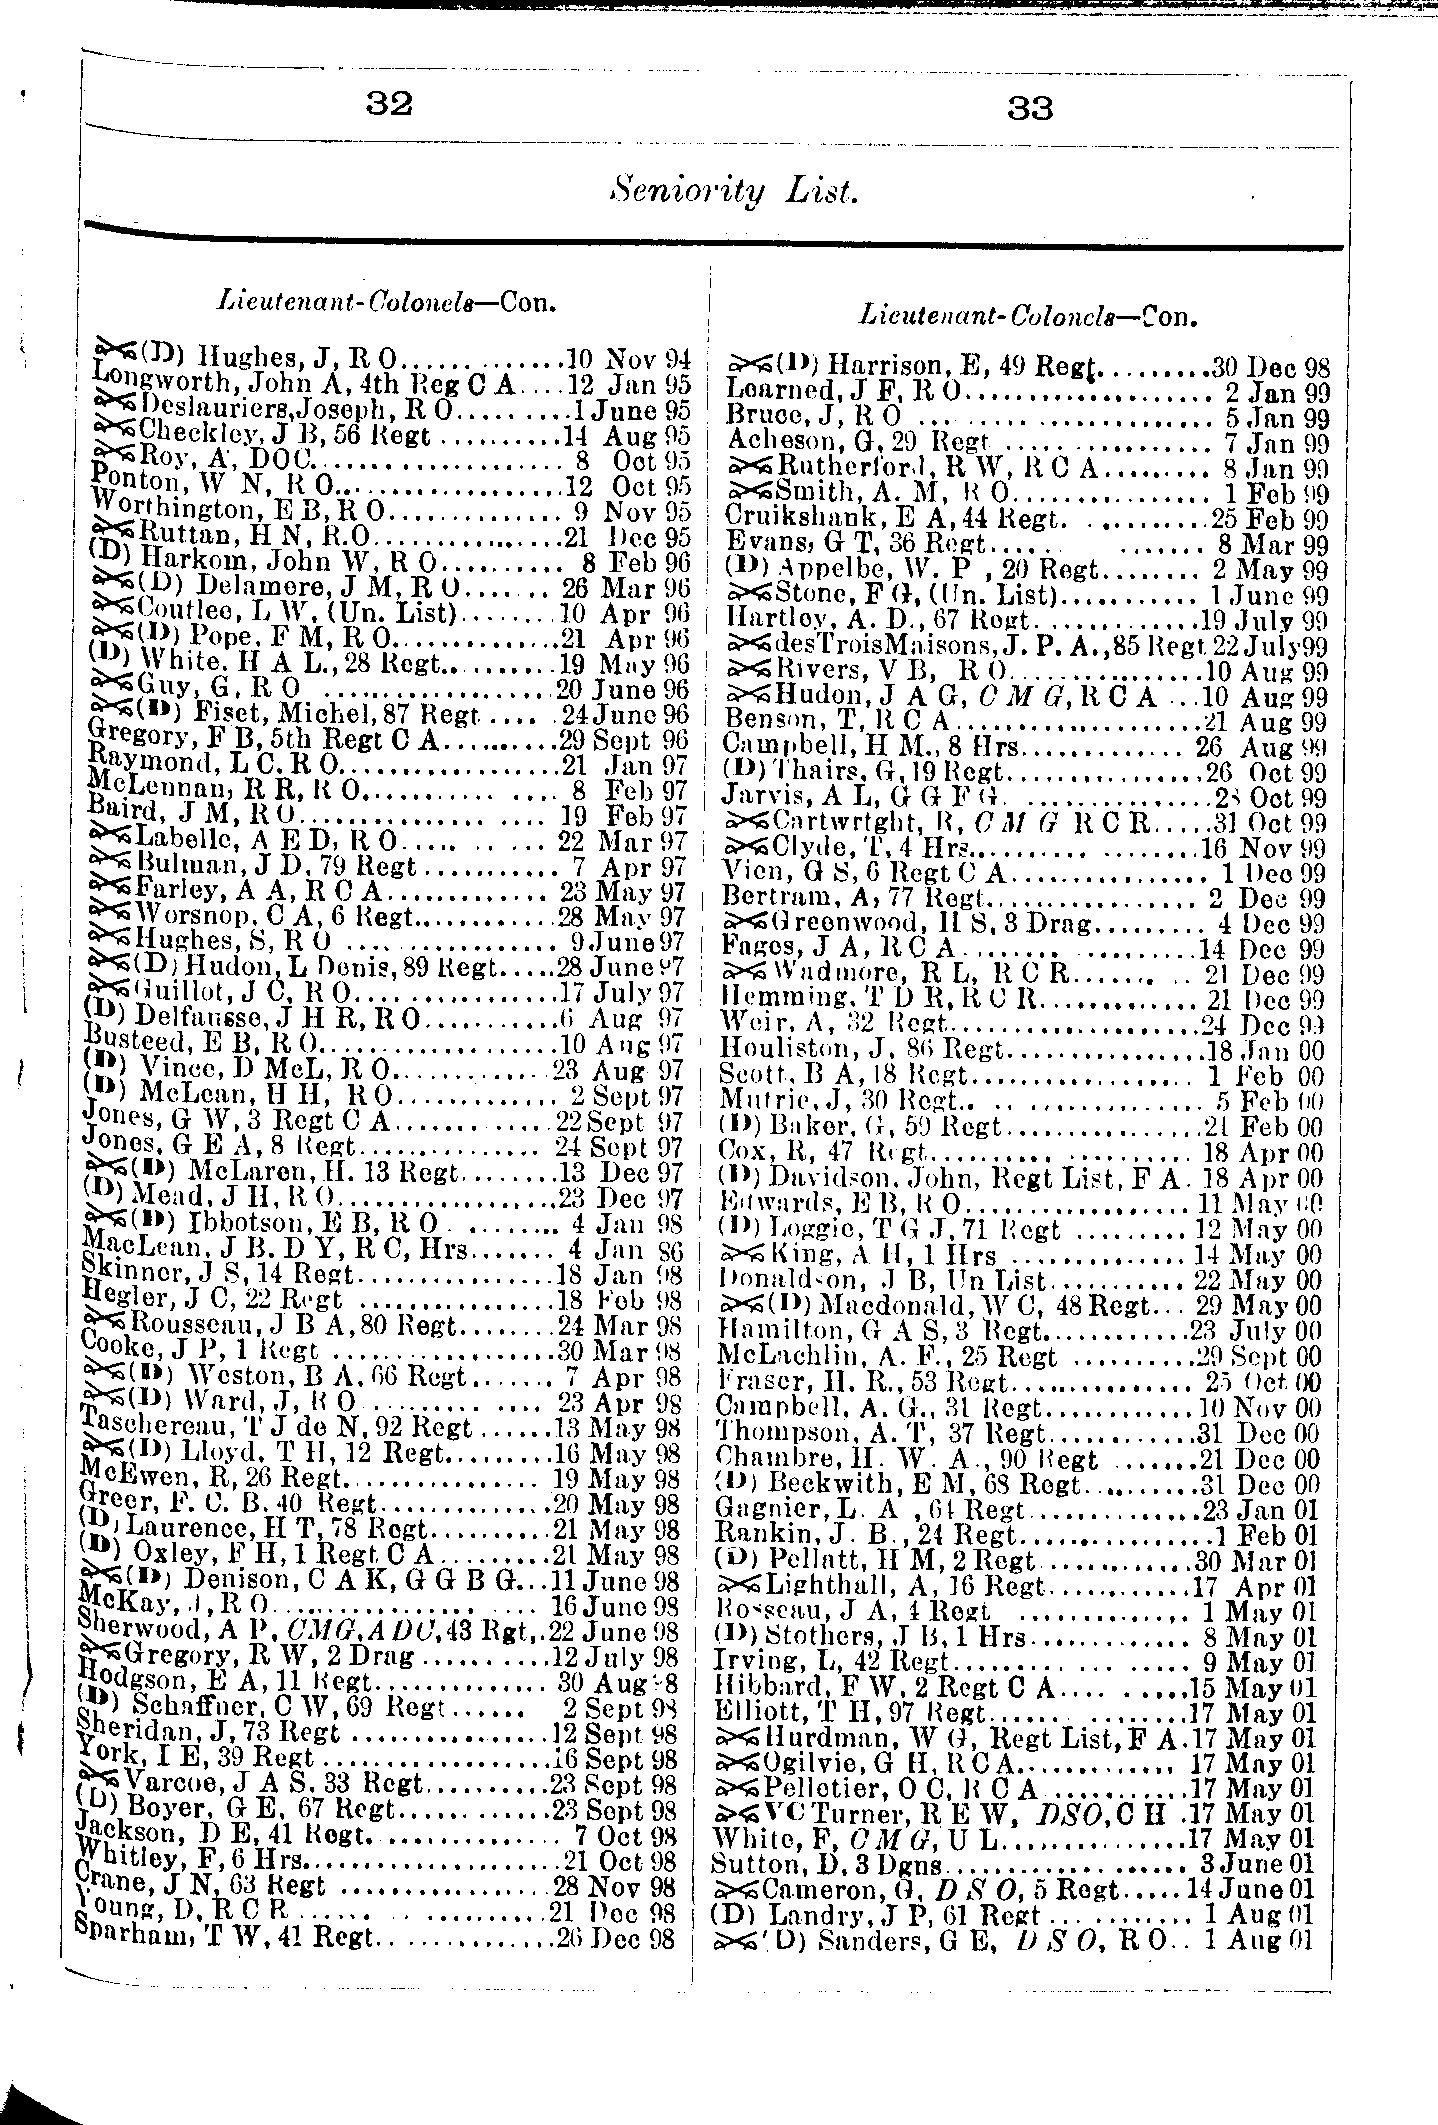 32
33
Seniority List.
Lieutenant-Colonels—Con.
⚔(D) Hughes, J, R O.............10 Nov 94
Longworth, John A, 4th Reg C A....12 Jan 95
⚔Deslauriers,Joseph, R O.........1 June 95
⚔Checkley, J B, 56 Regt ..........14 Aug 95
⚔Roy, A, DOC..................... 8 Oct 95
Ponton, W N, R O..................12 Oct 95
Worthington, E B, R O.............. 9 Nov 95
⚔Ruttan, H N, R.O...............21 Dec 95
(D) Harkom, John W, R O.......... 8 Feb 96
⚔(D) Delamere, J M, R O....... 26 Mar 96
⚔Coutlee, L W, (Un. List)........10 Apr 96
⚔(D) Pope, F M, R O.............21 Apr 96
(D) White. H A L., 28 Regt.........19 May 96
⚔Guy, G, R O ...................20 June 96
⚔(D) Fiset, Michel, 87 Regt..... .24 June 96
Gregory, F B, 5th Regt C A.........29 Sept 96
Raymond, L C, R O.................21 Jan 97
McLennan, R R, R O............ .... 8 Feb 97
Baird, J M, R O.............. .... 19 Feb 97
⚔Labelle, A E D, R O..... .. ... 22 Mar 97
⚔Bulman, J D, 79 Regt........... 7 Apr 97
⚔Farley, A A, R C A............. 23 May 97
⚔Worsnop, C A, 6 Regt...........28 May 97
⚔Hughes, S, R O ................. 9 June 97
⚔(D) Hudon, L Denis, 89 Regt.....28 June 97
⚔Guillot, J C, R O................17 July 97
(D) Delfausse, J H R, R O...........6 Aug 97
Busteed, E B, R O...................10 Aug 97
(D) Vince, D McL, R O.............23 Aug 97
(D) McLean, H H, R O............. 2 Sept 97
Jones, G W, 3 Regt C A.............22 Sept 97
Jones, G E A, 8 Regt............... 24 Sept 97
⚔(D) McLaren, H. 13 Regt........13 Dec 97
(D) Mead, J H, R O..................23 Dec 97
⚔(D) Ibbotson, E B, R O . ........ 4 Jan 98
MacLean, J B. D Y, R C, Hrs....... 4 Jan 86
Skinner, J S, 14 Regt................18 Jan 98
Hegler, J C, 22 Regt ................18 Feb 98
⚔Rousseau, J B A, 80 Regt........24 Mar 98
Cooke, J P, 1 Regt ..................30 Mar 98
⚔(D) Weston, B A, 66 Regt....... 7 Apr 98
⚔(D) Ward, J, R O .......... .... 23 Apr 98
Taschereau, T J de N, 92 Regt......13 May 98
⚔(D) Lloyd, T H, 12 Regt.........16 May 98
McEwen, R, 26 Regt................. 19 May 98
Greer, F. C. B. 40 Regt..............20 May 98
(D) Laurence, H T, 78 Regt..........21 May 98
(D) Oxley, F H, 1 Regt C A.........21 May 98
⚔(D) Denison, C A K, G G B G...11 June 98
McKay, J, R O..................... 16 June 98
Sherwood, A P, CMG, ADC, 43 Rgt,.22 June 98
⚔Gregory, R W, 2 Drag ..........12 July 98
Hodgson, E A, 11 Regt.............. 30 Aug 98
(D) Schaffner, C W, 69 Regt...... 2 Sept 98
Sheridan, J, 73 Regt ................12 Sept 98
York, I E, 39 Regt ..................16 Sept 98
⚔Varcoe, J A S. 33 Regt..........23 Sept 98
(D) Boyer, G E, 67 Regt............23 Sept 98
Jackson, D E, 41 Regt. .............. 7 Oct 98
Whitley, F, 6 Hrs.....................21 Oct 98
Crane, J N, 63 Regt .................28 Nov 98
Young, D, R C R ...... .. ..........21 Dec 98
Sparham, T W, 41 Regt..............26 Dec 98
Lieutenant-Colonels—Con.
⚔(D) Harrison, E, 49 Regt.........30 Dec 98
Learned, J F, R O..................... 2 Jan 99
Bruce, J, R O ... .................... 5 Jan 99
Acheson, G, 29 Regt................. 7 Jan 99
⚔Rutherford, R W, R C A......... 8 Jan 99
⚔Smith, A. M, R O................ 1 Feb 99
Cruikshank, E A, 44 Regt. ..........25 Feb 99
Evans, G T, 36 Regt...... ....... 8 Mar 99
(D) Appelbe, W. P , 20 Regt........ 2 May 99
⚔Stone, F G, (Un. List)............ 1 June 99
Hartley, A. D., 67 Regt..............19 July 99
⚔desTroisMaisons, J. P. A.,85 Regt 22 July 99
⚔Rivers, V B, R O................10 Aug 99
⚔Hudon, J A G, C M G, R C A ...10 Aug 99
Benson, T, R C A....................21 Aug 99
Campbell, H M., 8 Hrs............. 26 Aug 99
(D) Thairs, G, 19 Regt................26 Oct 99
Jarvis, A L, G G F G. ................28 Oct 99
⚔Cartwrtght, R, C M G R C R.....31 Oct 99
⚔Clyde, T, 4 Hrs...................16 Nov 99
Vien, G S, 6 Regt C A................ 1 Dec 99
Bertram, A, 77 Regt................. 2 Dec 99
⚔Greenwood, H S, 3 Drag......... 4 Dec 99
Fages, J A, R C A........ ..........14 Dec 99
⚔Wadmore, R L, R C R....... .. 21 Dec 99
Hemming, T D R, R C R............ 21 Dec 99
Weir, A, 32 Regt.....................24 Dec 99
Houliston, J, 86 Regt................18 Jan 00
Scott, B A, 18 Regt................... 1 Feb 00
Mutrie, J, 30 Regt.. .. .............. 5 Feb 00
(D) Baker, G, 59 Regt................21 Feb 00
Cox, R, 47 Regt.......... .......... 18 Apr 00
(D) Davidson, John, Regt List, F A. 18 Apr 00
Edwards, E B, R O.................. 11 May 00
(D) Loggie, T G J, 71 Regt ......... 12 May 00
⚔King, A H, 1 Hrs .............. 14 May 00
Donaldson, J B, Un List............ 22 May 00
⚔(D) Macdonald, W C, 48 Regt... 29 May 00
Hamilton, G A S, 3 Regt............23 July 00
McLachlin, A. F., 25 Regt ..........29 Sept 00
Fraser, H. R., 53 Regt............... 25 Oct 00
Campbell, A. G., 31 Regt............10 Nov 00
Thompson, A. T, 37 Regt............31 Dec 00
Chambre, H. W. A., 90 Regt .......21 Dec 00
(D) Beckwith, E M, 68 Regt..........31 Dec 00
Gagnier, L. A , 64 Regt..............23 Jan 01
Rankin, J. B., 24 Regt................1 Feb 01
(D) Pellatt, H M, 2 Regt ............30 Mar 01
⚔Lighthall, A, 16 Regt............17 Apr 01
Rosseau, J A, 4 Regt .............. 1 May 01
(D) Stothers, J B, 1 Hrs............. 8 May 01
Irving, L, 42 Regt................... 9 May 01
Hibbard, F W, 2 Regt C A..........15 May 01
Elliott, T H, 97 Regt....... ........17 May 01
⚔Hurdman, W G, Regt List, F A.17 May 01
⚔Ogilvie, G H, R C A............. 17 May 01
⚔Pelletier, O C, R C A ...........17 May 01
⚔VC Turner, R E W, DSO, C H .17 May 01
White, F, C M G, U L...............17 May 01
Sutton, D, 3 Dgns............ ...... 3 June 01
⚔Cameron, G, D S O, 5 Regt.....14 June 01
(D) Landry, J P, 61 Regt ... ........ 1 Aug 01
⚔(D) Sanders, G E, D S O, R O.. 1 Aug 01